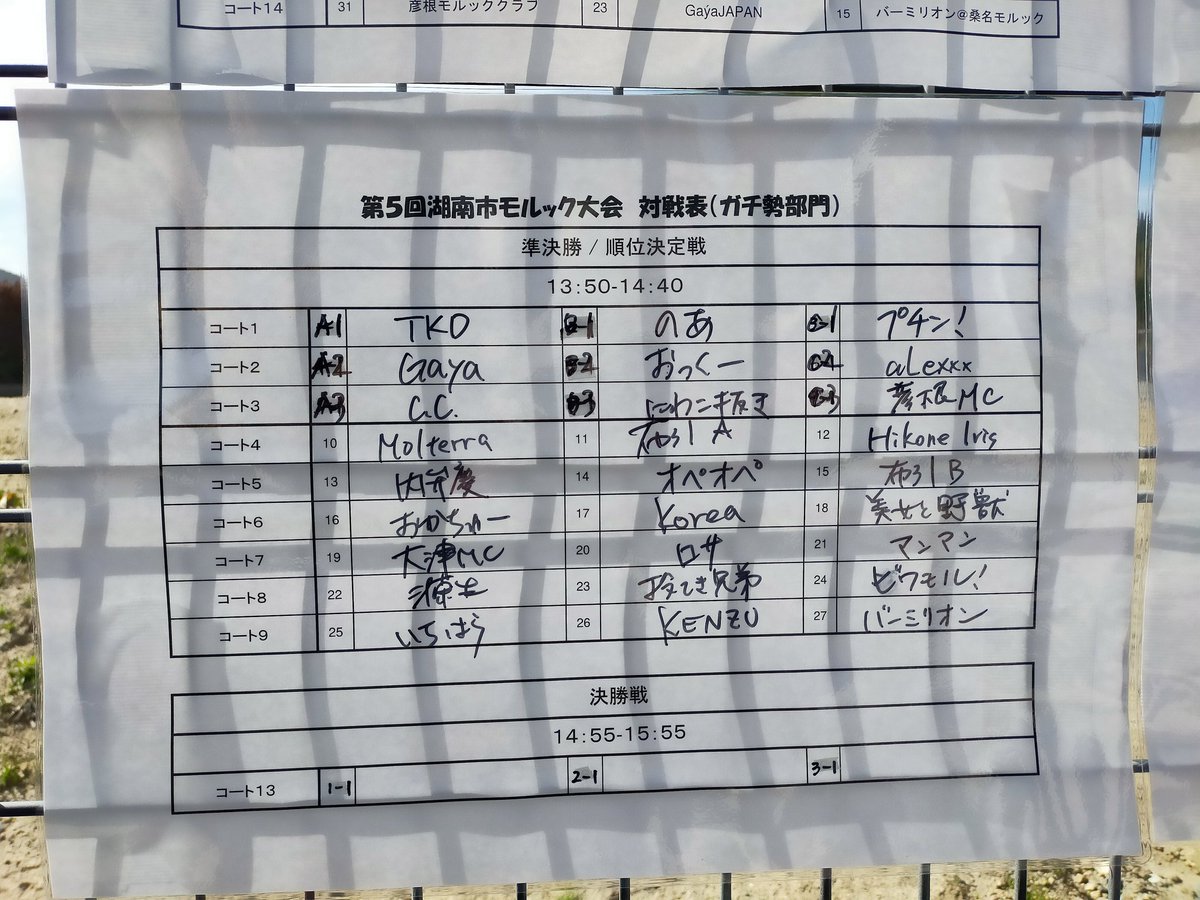 コート14 31 彦根モルッククラブ 23 GaýaJAPAN 15 バーミリオン@桑名モルック
第5回湖南市モルック大会 対戦表(ガチ勢部門)
準決勝 / 順位決定戦
13:50-14:40
コート1 A-1 TKO B-1 のあ プチン!
コート2 A-2 Gaya B-2 おっくー aLexxx
コート3 A-3 G.C. B-3 にわこ抜き 彦根MC
コート4 10 Molterra 11 布引A 12 Hikone Iris
コート5 13 内弁慶 14 オペオペ 15 布引B
コート6 16 おかちゅー 17 Korea 18 美女と野獣
コート7 19 大津MC 20 ロサ 21 マンマン
コート8 22 23 24 ビワモル!
コート9 25 いちはら 26 KENZO 27 バーミリオン
決勝戦
14:55-15:55
コート13 1-1 2-1 3-1